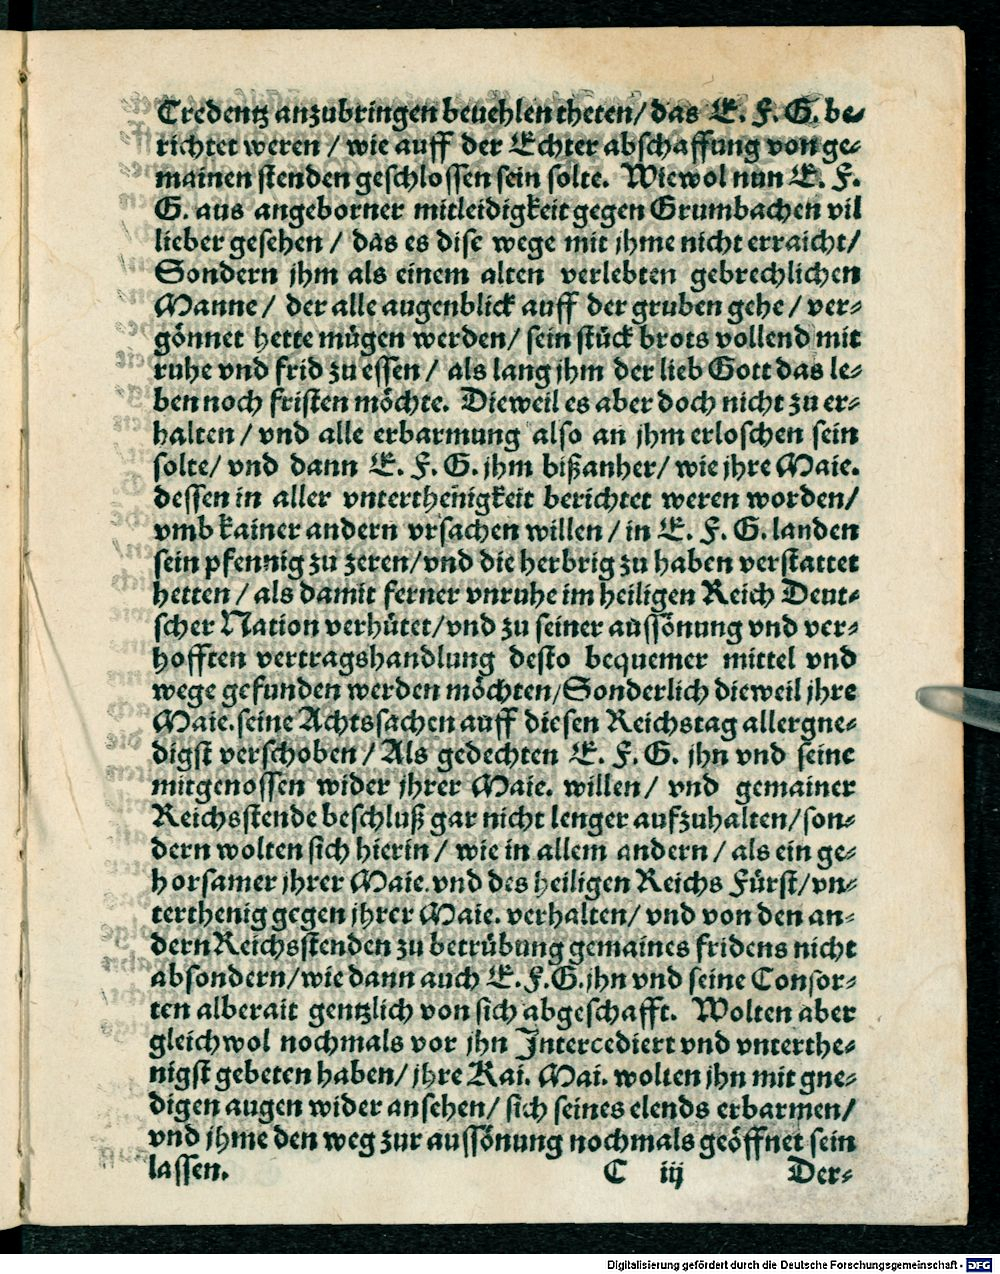 Credentz anzubringen beuehlen theten/ das E. F. G. be⸗
richtet weren / wie auff der Echter abschaffung von ge⸗
mainen stenden geschlossen sein solte. Wiewol nun E. F.
G. aus angeborner mitleidigkeit gegen Grumbachen vil
lieber gesehen / das es dise wege mit jhme nicht erraicht/
Sondern jhm als einem alten verlebten gebrechlichen
Manne/ der alle augenblick auff der gruben gehe / ver⸗
gönnet hette mügen werden/ sein stück brots vollend mit
ruhe vnd frid zu essen / als lang jhm der lieb Gott das le⸗
ben noch fristen möchte. Dieweil es aber doch nicht zu er⸗
halten / vnd alle erbarmung also an jhm erloschen sein
solte/ vnd dann E. F. G. jhm bißanher/ wie jhre Maie.
dessen in aller vnterthenigkeit berichtet weren worden/
vmb kainer andern vrsachen willen / in E. F. G. landen
sein pfennig zu zeren/vnd die herbrig zu haben verstattet
hetten / als damit ferner vnruhe im heiligen Reich Deut⸗
scher Nation verhütet/vnd zu seiner aussönung vnd ver⸗
hofften vertragshandlung desto bequemer mittel vnd
wege gefunden werden möchten/Sonderlich dieweil jhre
Maie. seine Achtssachen auff diesen Reichstag allergne⸗
digst verschoben / Als gedechten E. F. G. jhn vnd seine
mitgenossen wider jhrer Maie. willen/ vnd gemainer
Reichsstende beschluß gar nicht lenger aufzuhalten/son⸗
dern wolten sich hierin / wie in allem andern / als ein ge⸗
horsamer jhrer Maie. vnd des heiligen Reichs Fürst/vn⸗
terthenig gegen jhrer Maie. verhalten/ vnd von den an⸗
dern Reichsstenden zu betrübung gemaines fridens nicht
absondern/wie dann auch E.F.G.jhn vnd seine Consor⸗
ten alberait gentzlich von sich abgeschafft. Wolten aber
gleichwol nochmals vor jhn Intercediert vnd vnterthe⸗
nigst gebeten haben/ jhre Kai. Mai. wolten jhn mit gne⸗
digen augen wider ansehen/ sich seines elends erbarmen/
vnd jhme den weg zur aussönung nochmals geöffnet sein
lassen. C iij Der⸗
Digitalisierung gefördert durch die Deutsche Forschungsgemeinschaft - DFG